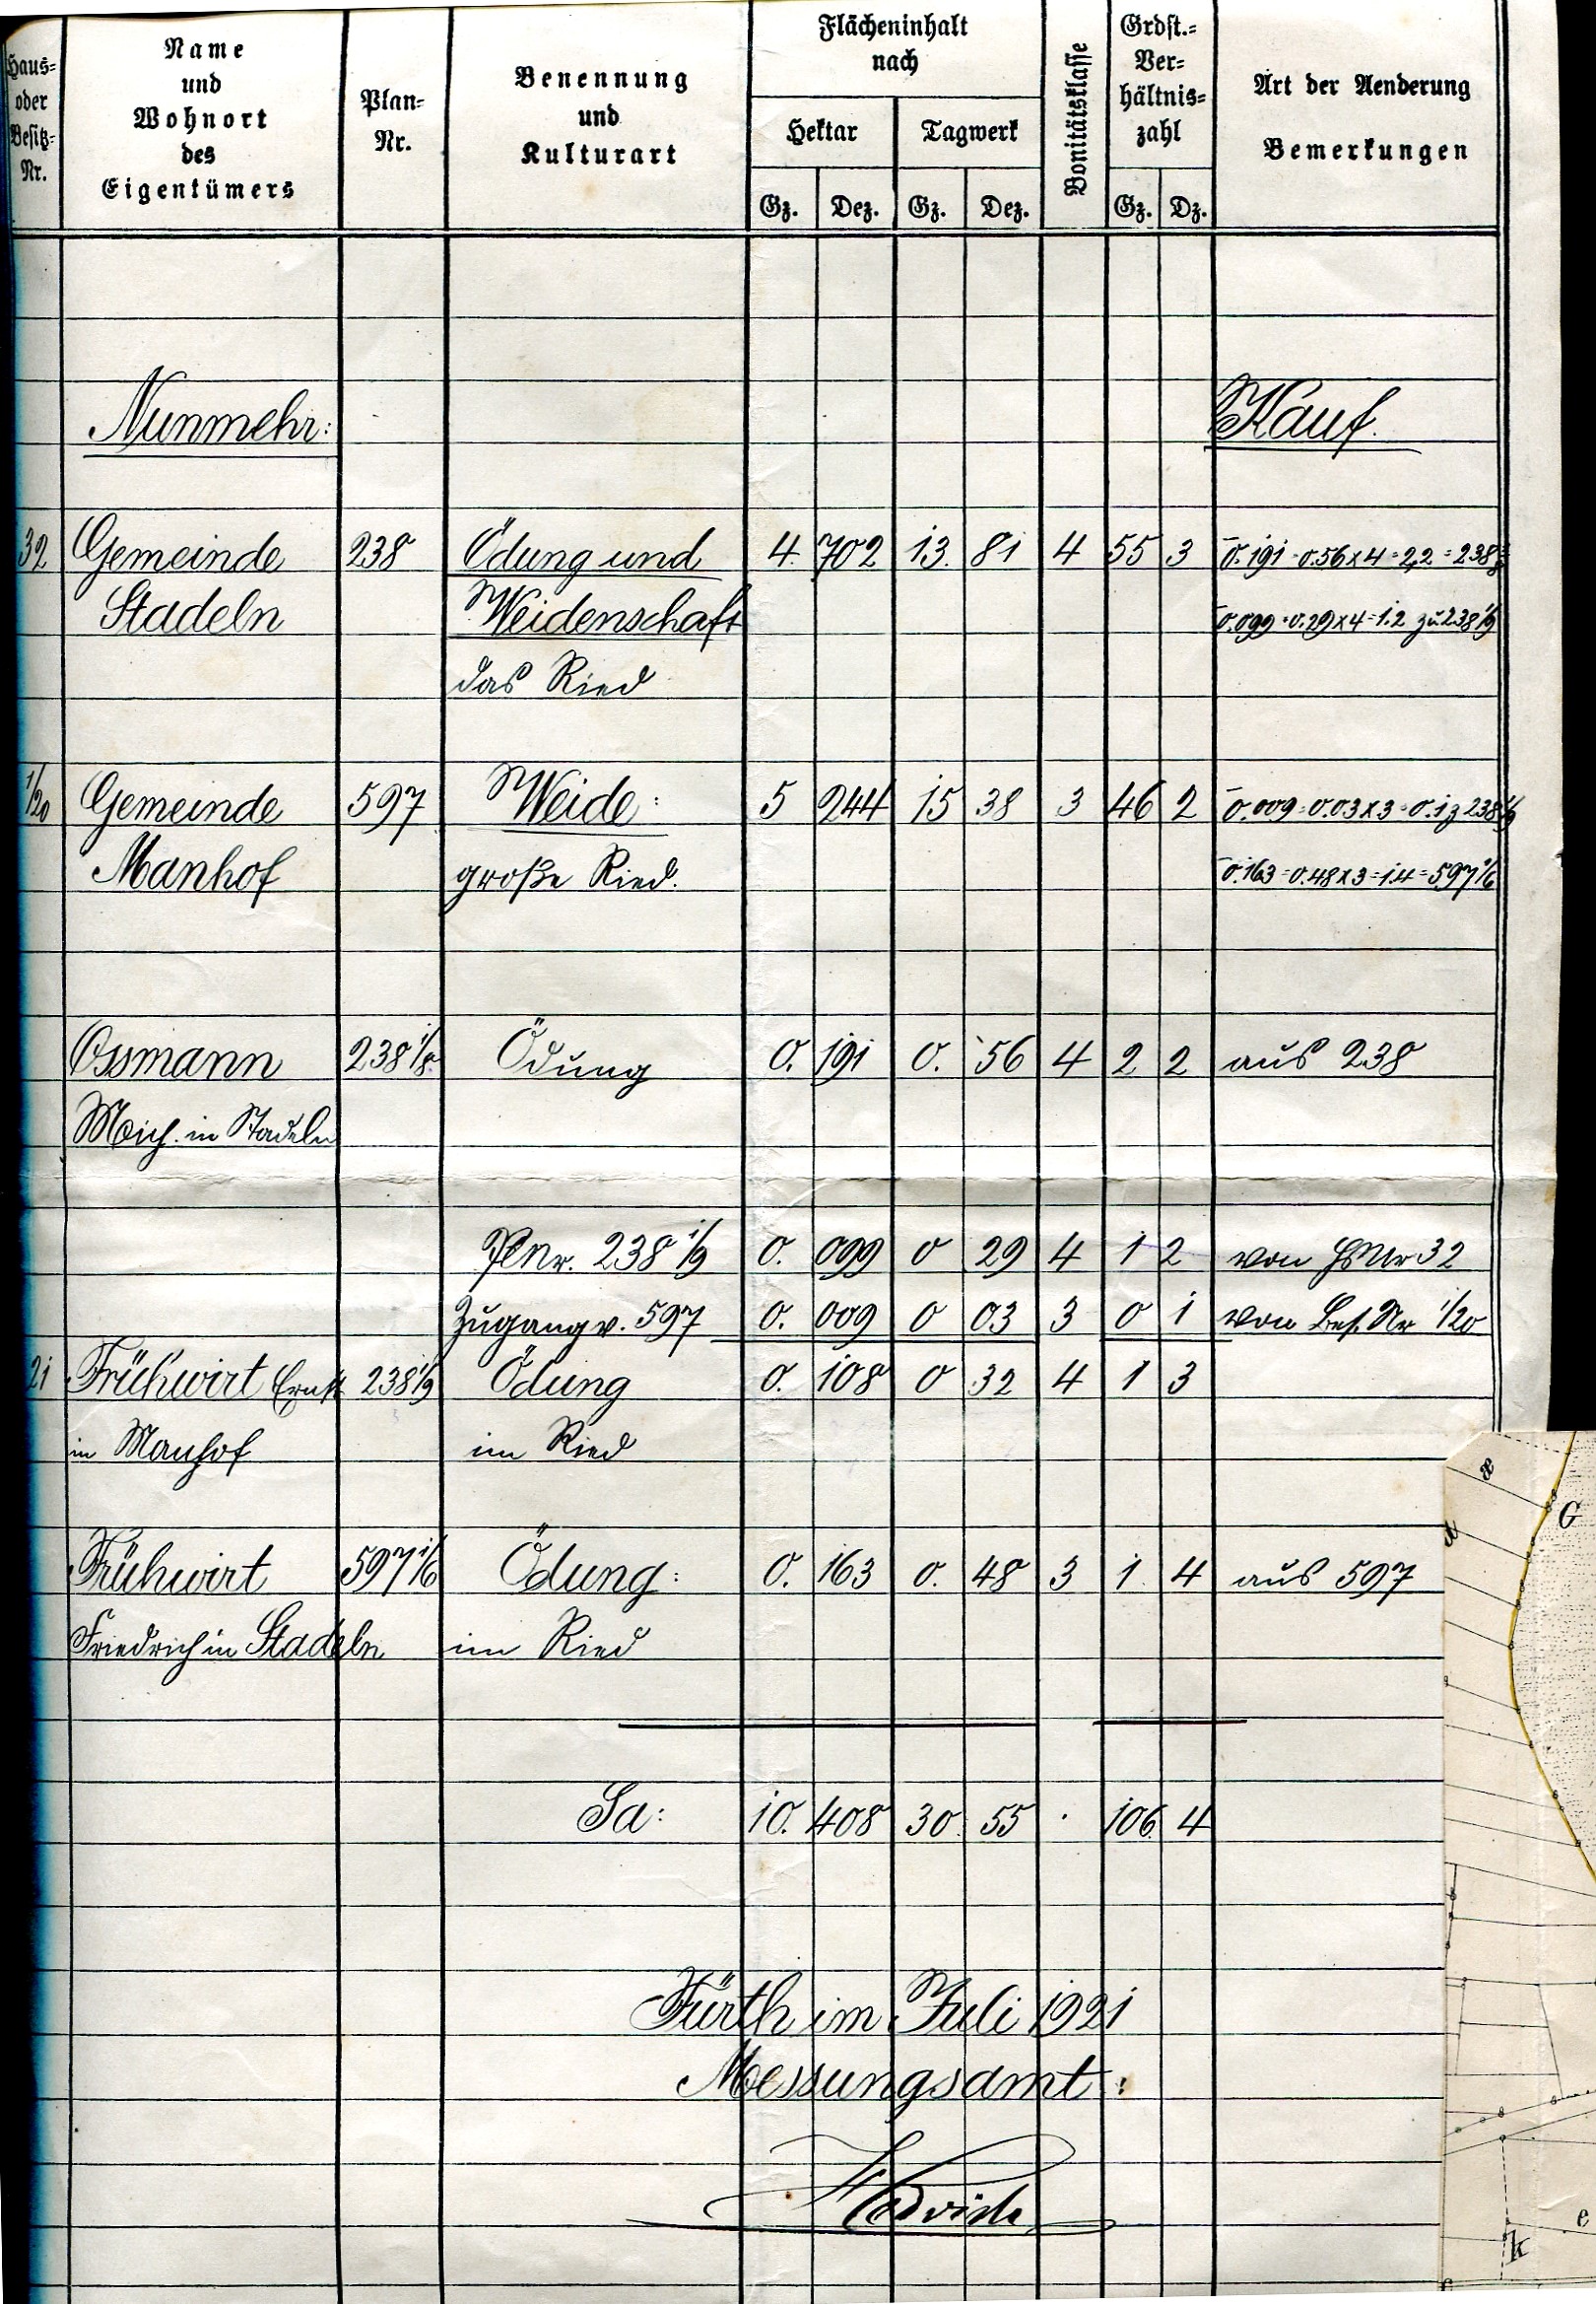 Haus= oder Besitz= Nr.
Name und Wohnort des Eigentümers
Plan= Nr.
Benennung und Kulturart
Flächeninhalt nach
Hektar Tagwerk
Gz. Dez. Gz. Dez.
Bonitätsklasse
Grdst.= Ver= hältnis= zahl
Gz. Dz.
Art der Aenderung
Bemerkungen
Nunmehr: Kauf.
32 Gemeinde 238 Ödung und 4. 702 13. 81 4 55 3 0.191=0.56x4=2,2=238 1/8
Stadeln Weidenschaft 0.099=0.29x4=1.2 zu 238 1/9
das Ried
1/20 Gemeinde 597 Weide: 5 244 15 38 3 46 2 0.009=0.03x3=0.1 z 238 1/9
Manhof große Ried. 0.163=0.48x3=1.4=597 1/6
Ossmann 238 1/8 Ödung 0. 191 0. 56 4 2 2 aus 238
Mich. in Stadeln
PlNr. 238 1/9 0. 099 0 29 4 1 2 von HsNr 32
Zugang v. 597 0. 009 0 03 3 0 1 von Bes. Nr 1/20
21 Frühwirt Ernst 238 1/9 Ödung 0. 108 0 32 4 1 3
in Manhof im Ried
Frühwirt 597 1/6 Ödung: 0. 163 0. 48 3 1 4 aus 597
Friedrich in Stadeln im Ried
Sa: 10. 408 30. 55 . 106. 4
Fürth im Juli 1921
Messungsamt:
æ
G
e
k